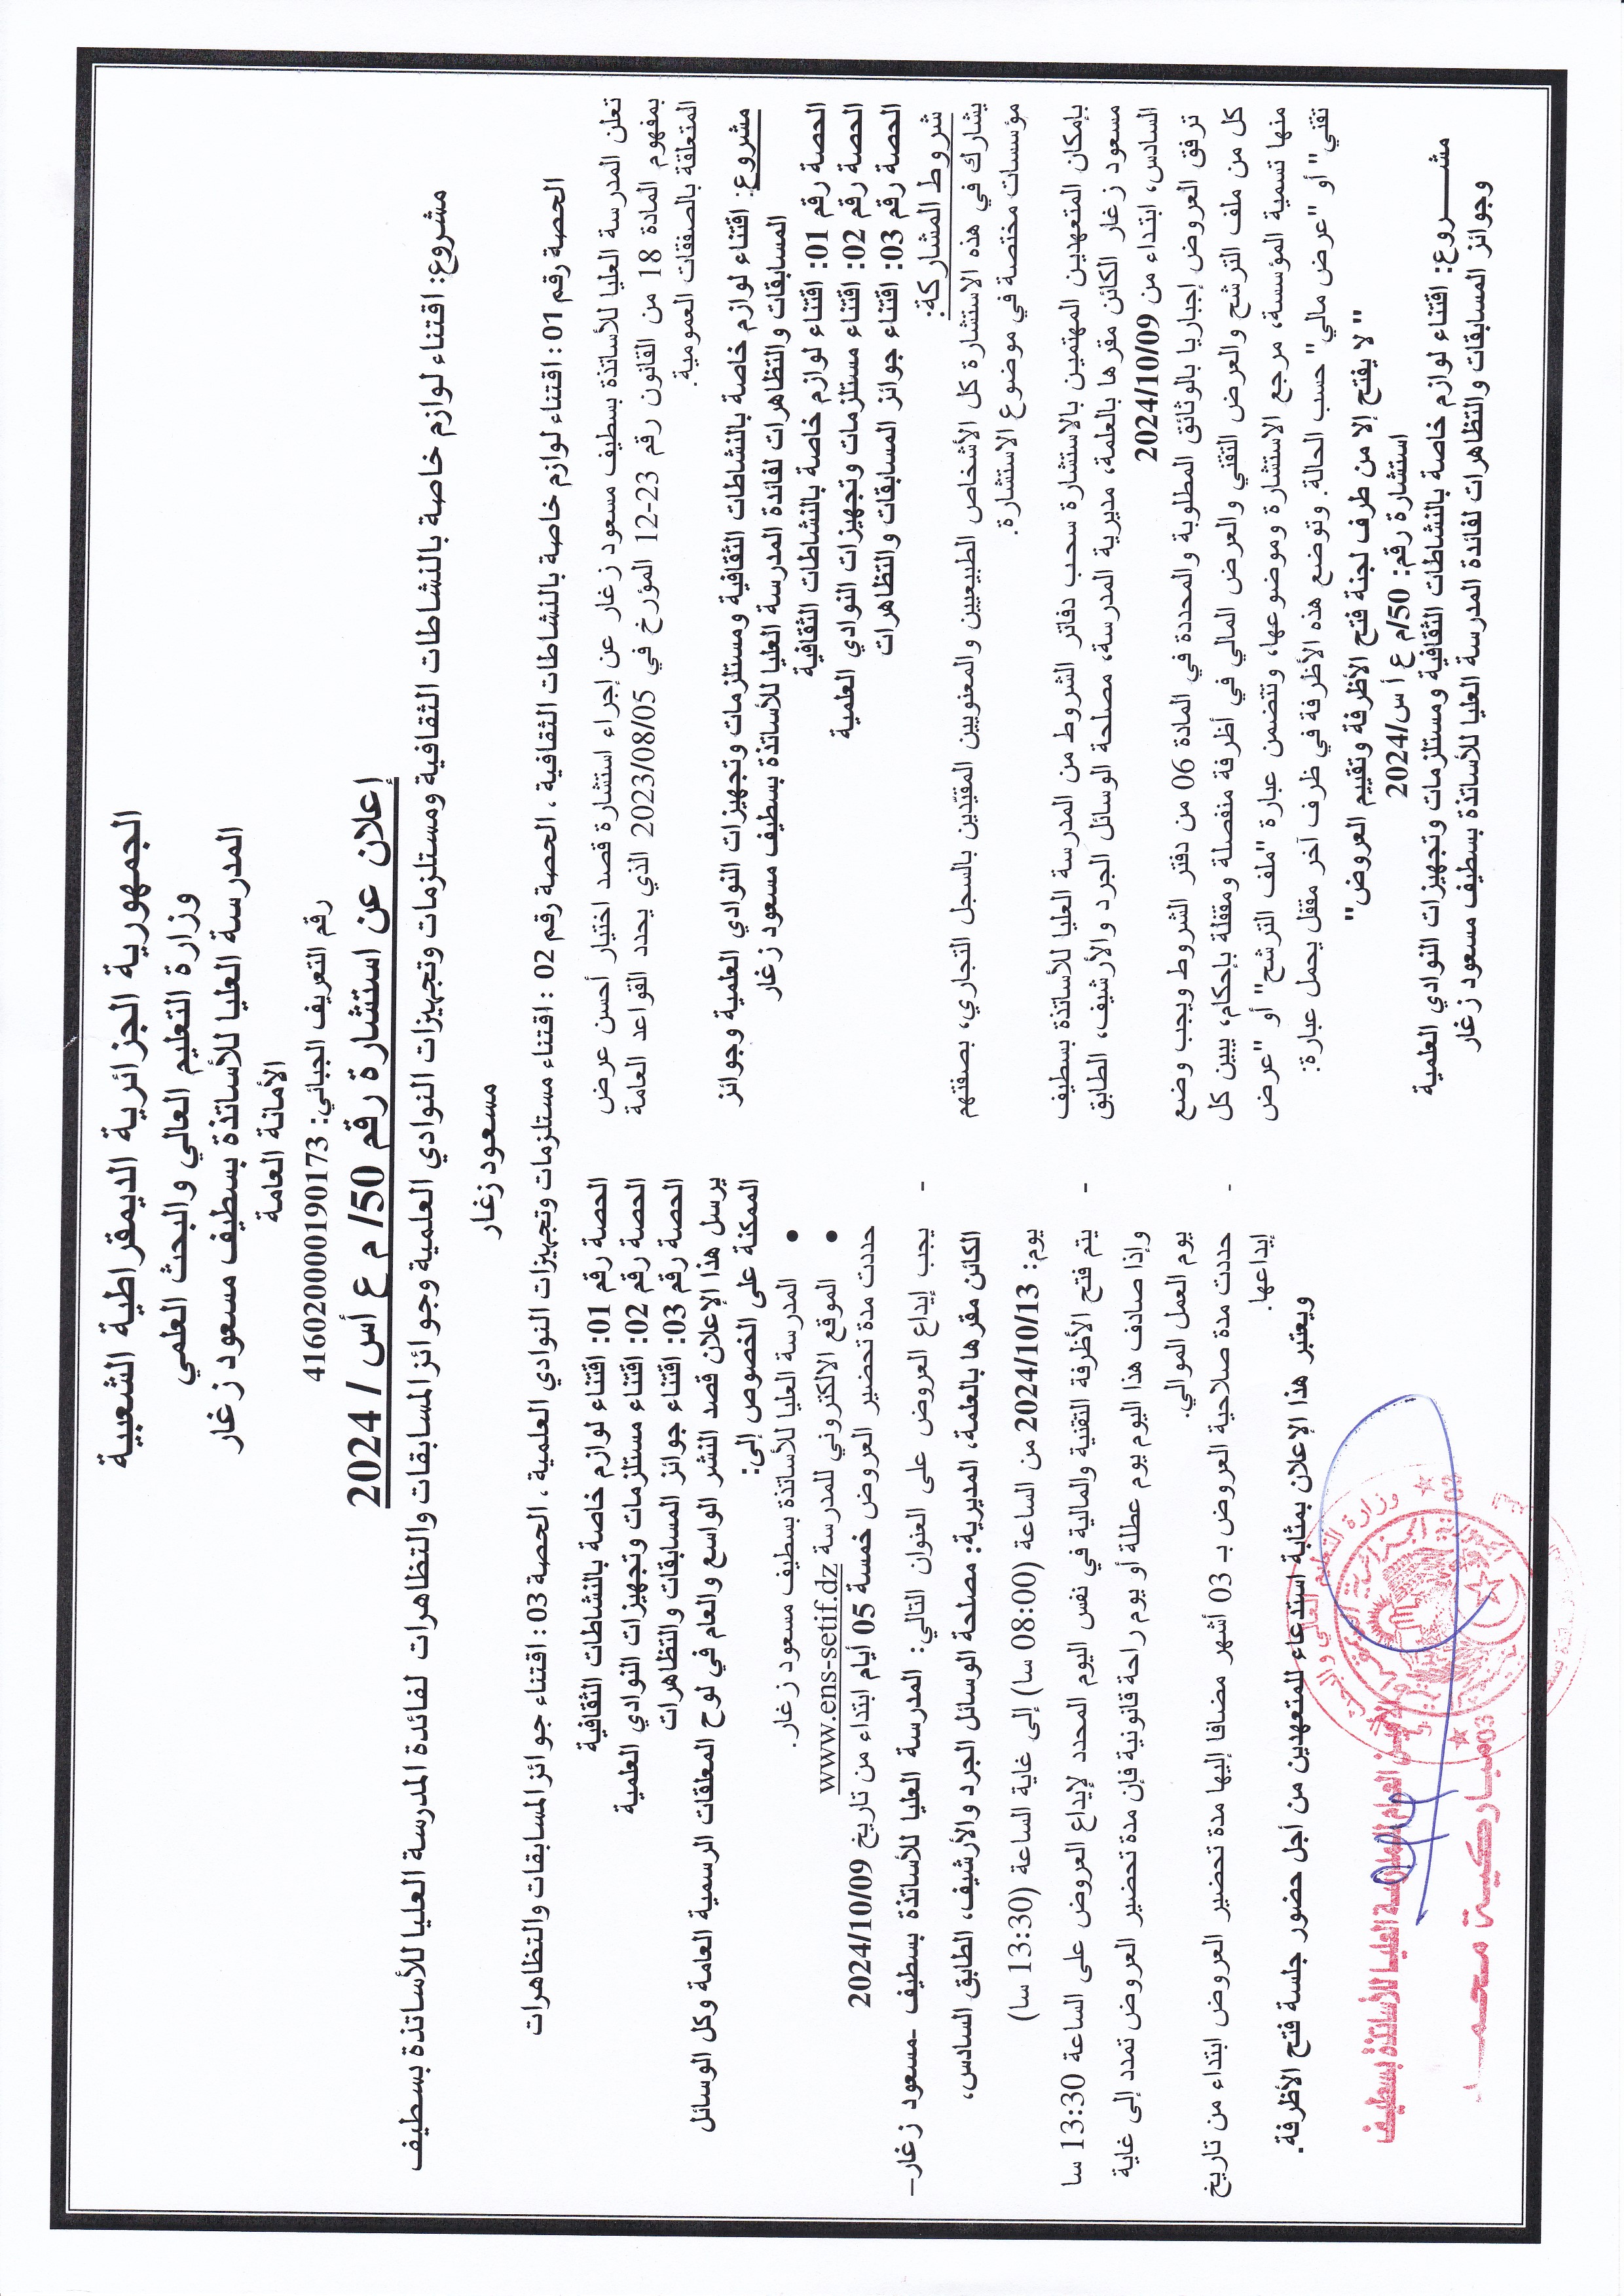 الجمهورية الجزائرية الديمقراطية الشعبية
وزارة التعليم العالي والبحث العلمي
المدرسة العليا للأساتذة بسطيف مسعود زغار
الأمانة العامة
رقم التعريف الجبائي: 416020000190173
إعلان عن استشارة رقم 50/ م ع أس / 2024
مشروع: اقتناء لوازم خاصة بالنشاطات الثقافية ومستلزمات وتجهيزات النوادي العلمية وجوائز المسابقات والتظاهرات لفائدة المدرسة العليا للأساتذة بسطيف
مسعود زغار
الحصة رقم 01 : اقتناء لوازم خاصة بالنشاطات الثقافية ، الحصة رقم 02 : اقتناء مستلزمات وتجهيزات النوادي العلمية ، الحصة 03 : اقتناء جوائز المسابقات والتظاهرات
تعلن المدرسة العليا للأساتذة بسطيف مسعود زغار عن إجراء استشارة قصد اختيار أحسن عرض
بمفهوم المادة 18 من القانون رقم 23-12 المؤرخ في 2023/08/05 الذي يحدد القواعد العامة
المتعلقة بالصفقات العمومية.
مشروع: اقتناء لوازم خاصة بالنشاطات الثقافية ومستلزمات وتجهيزات النوادي العلمية وجوائز
المسابقات والتظاهرات لفائدة المدرسة العليا للأساتذة بسطيف مسعود زغار
الحصة رقم 01: اقتناء لوازم خاصة بالنشاطات الثقافية
الحصة رقم 02: اقتناء مستلزمات وتجهيزات النوادي العلمية
الحصة رقم 03: اقتناء جوائز المسابقات والتظاهرات
شروط المشاركة:
يشارك في هذه الاستشارة كل الأشخاص الطبيعيين والمعنويين المقيّدين بالسجل التجاري، بصفتهم
مؤسسات مختصة في موضوع الاستشارة.
بإمكان المتعهدين المهتمين بالاستشارة سحب دفاتر الشروط من المدرسة العليا للأساتذة بسطيف
مسعود زغار الكائن مقرها بالعلمة، مديرية المدرسة، مصلحة الوسائل الجرد والأرشيف، الطابق
السادس، ابتداء من 2024/10/09
ترفق العروض إجباريا بالوثائق المطلوبة والمحددة في المادة 06 من دفتر الشروط ويجب وضع
كل من ملف الترشح والعرض التقني والعرض المالي في أظرفة منفصلة ومقفلة بإحكام، يبين كل
منها تسمية المؤسسة، مرجع الاستشارة وموضوعها، وتتضمن عبارة "ملف الترشح" أو "عرض
تقني" أو "عرض مالي" حسب الحالة. وتوضع هذه الأظرفة في ظرف آخر مقفل يحمل عبارة:
" لا يفتح إلا من طرف لجنة فتح الأظرفة وتقييم العروض"
استشارة رقم: 50/م ع أ س/2024
مشـــــروع: اقتناء لوازم خاصة بالنشاطات الثقافية ومستلزمات وتجهيزات النوادي العلمية
وجوائز المسابقات والتظاهرات لفائدة المدرسة العليا للأساتذة بسطيف مسعود زغار
الحصة رقم 01: اقتناء لوازم خاصة بالنشاطات الثقافية
الحصة رقم 02: اقتناء مستلزمات وتجهيزات النوادي العلمية
الحصة رقم 03: اقتناء جوائز المسابقات والتظاهرات
يرسل هذا الإعلان قصد النشر الواسع والعام في لوح المعلقات الرسمية العامة وكل الوسائل
الممكنة على الخصوص إلى:
• المدرسة العليا للأساتذة بسطيف مسعود زغار.
• الموقع الالكتروني للمدرسة www.ens-setif.dz
حددت مدة تحضير العروض خمسة 05 أيام ابتداء من تاريخ 2024/10/09
- يجب إيداع العروض على العنوان التالي: المدرسة العليا للأساتذة بسطيف -مسعود زغار–
الكائن مقرها بالعلمة، المديرية: مصلحة الوسائل الجرد والأرشيف، الطابق السادس،
يوم: 2024/10/13 من الساعة (08:00 سا) إلى غاية الساعة (13:30 سا)
- يتم فتح الأظرفة التقنية والمالية في نفس اليوم المحدد لإيداع العروض على الساعة 13:30 سا
وإذا صادف هذا اليوم يوم عطلة أو يوم راحة قانونية فإن مدة تحضير العروض تمدد إلى غاية
يوم العمل الموالي.
- حددت مدة صلاحية العروض بـ 03 أشهر مضافا إليها مدة تحضير العروض ابتداء من تاريخ
إيداعها.
ويعتبر هذا الإعلان بمثابة استدعاء للمتعهدين من أجل حضور جلسة فتح الأظرفة.
الأمين العام للمدرسة العليا للأساتذة بسطيف